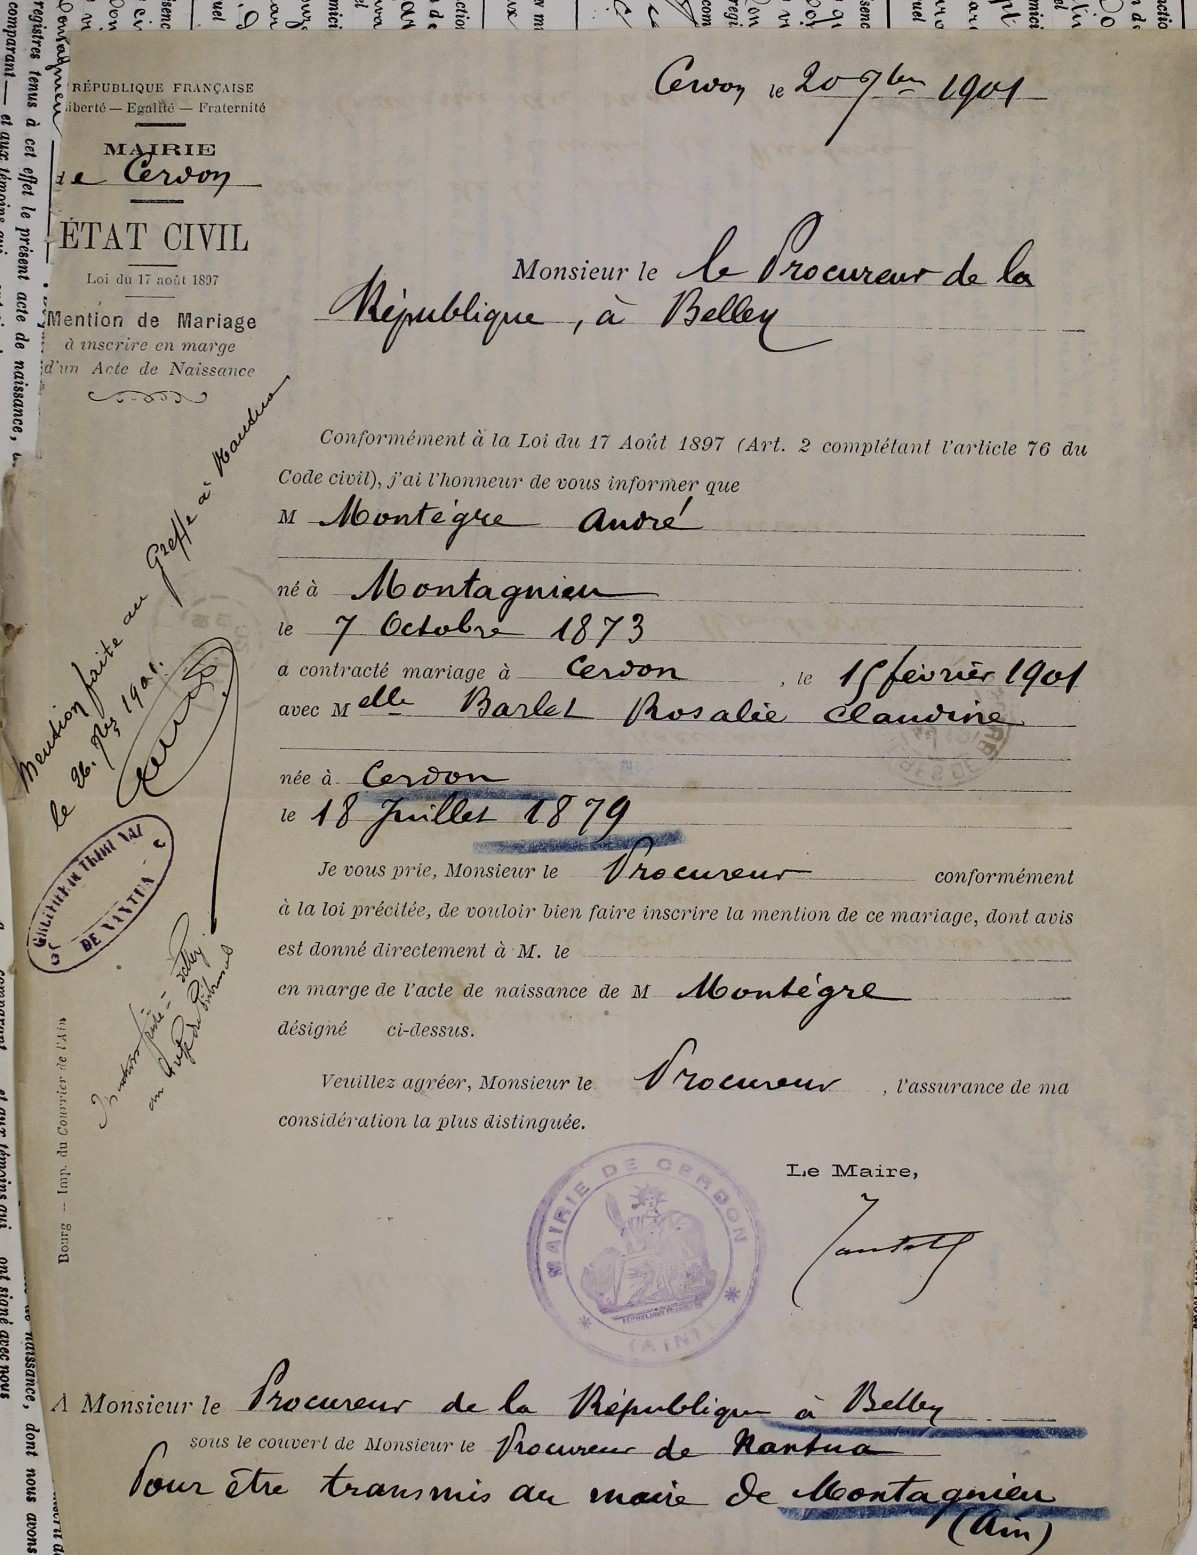 Cerdon le 20 7bre 1901
RÉPUBLIQUE FRANÇAISE
Liberté — Egalité — Fraternité
MAIRIE
de Cerdon
ÉTAT CIVIL
Loi du 17 août 1897
Mention de Mariage
à inscrire en marge
d'un Acte de Naissance
Monsieur le le Procureur de la
République, à Belley
Conformément à la Loi du 17 Août 1897 (Art. 2 complétant l'article 76 du
Code civil), j'ai l'honneur de vous informer que
M Montégre André
né à Montagnieu
le 7 Octobre 1873
a contracté mariage à Cerdon, le 15 février 1901
avec Melle Barlet Rosalie Claudine
née à Cerdon
le 18 Juillet 1879
Je vous prie, Monsieur le Procureur conformément
à la loi précitée, de vouloir bien faire inscrire la mention de ce mariage, dont avis
est donné directement à M. le
en marge de l'acte de naissance de M Montégre
désigné ci-dessus.
Veuillez agréer, Monsieur le Procureur, l'assurance de ma
considération la plus distinguée.
Le Maire,
MAIRIE DE CERDON
(AIN)
A Monsieur le Procureur de la République à Belley
sous le couvert de Monsieur le Procureur de Nantua
Pour être transmis au maire de Montagnieu
(Ain)
Mention faite au Greffe à Nantua
le 26. 7bre 1901.
DE NANTUA
au Greffe du Tribunal
Bourg — Imp. du Courrier de l'Ain
registres tenus à cet effet le présent acte de naissance,